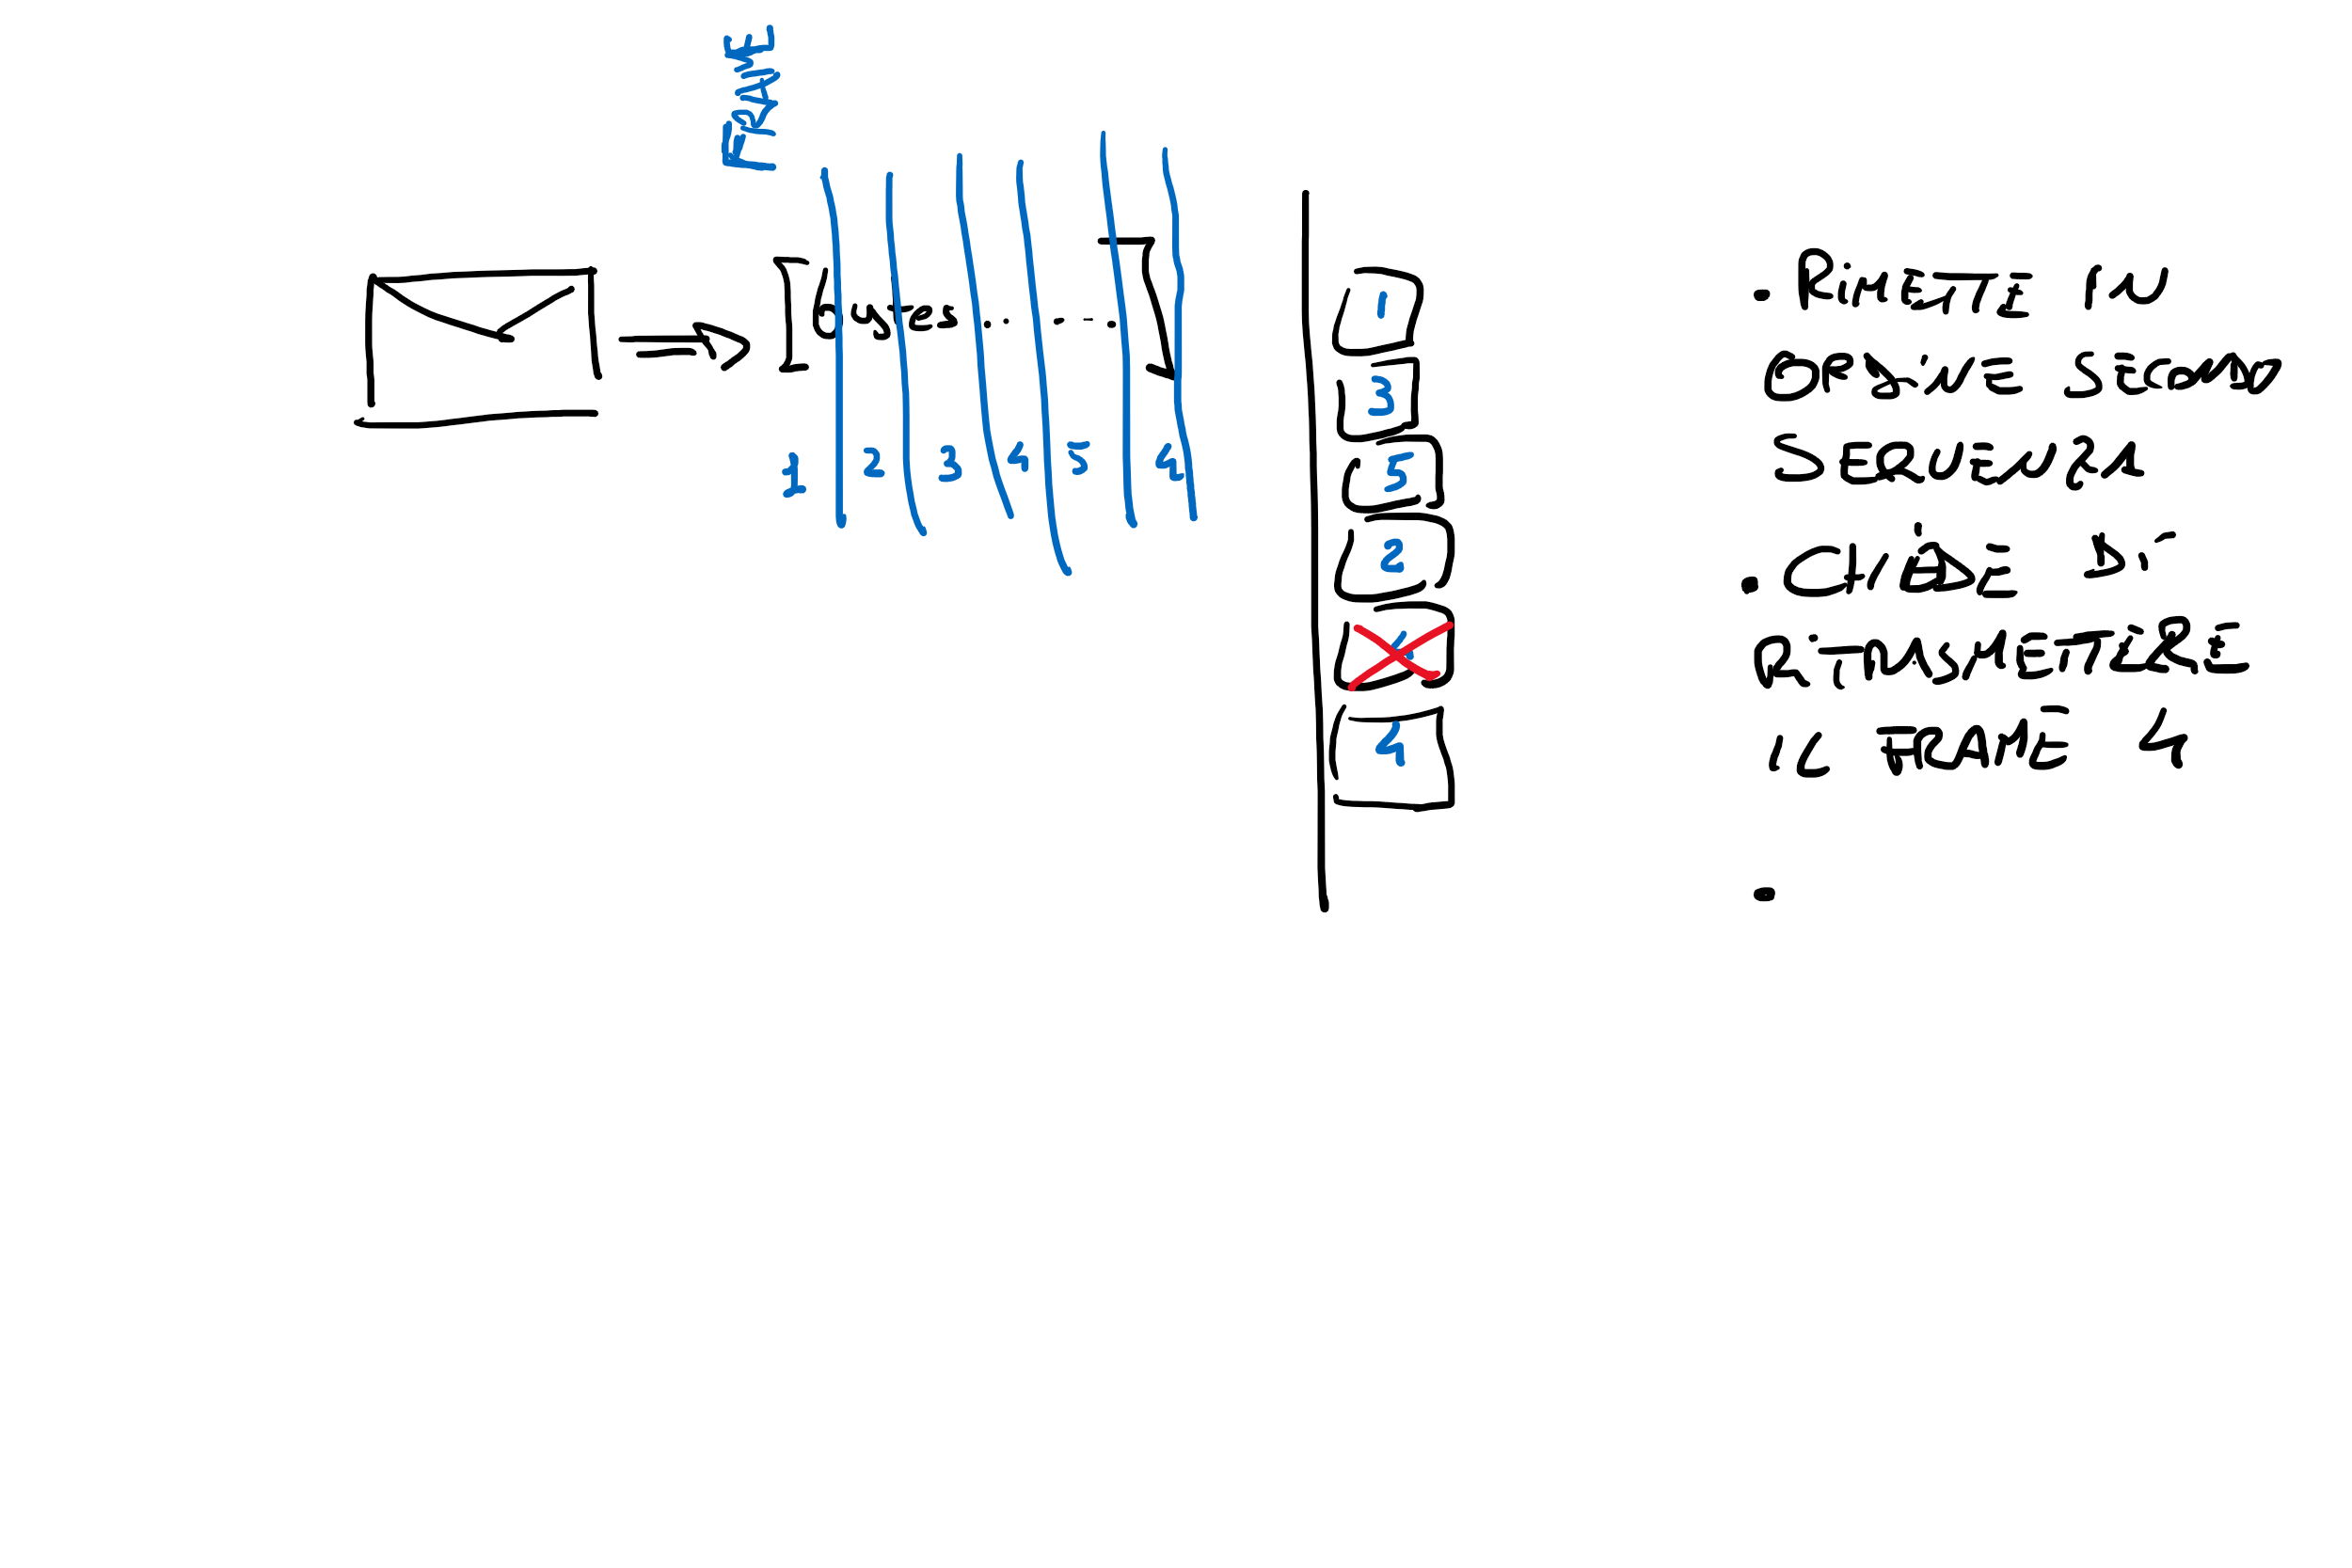 FRAME
[ bytes . . . . . ]
1 2 3 4 5 4
1
3
5
2
4
4
. RIMETTE IN
ORDINE SECONDO
SEQUENZA
. CHIEDE DI
RITRASMETTERE
IL FRAME 4
.